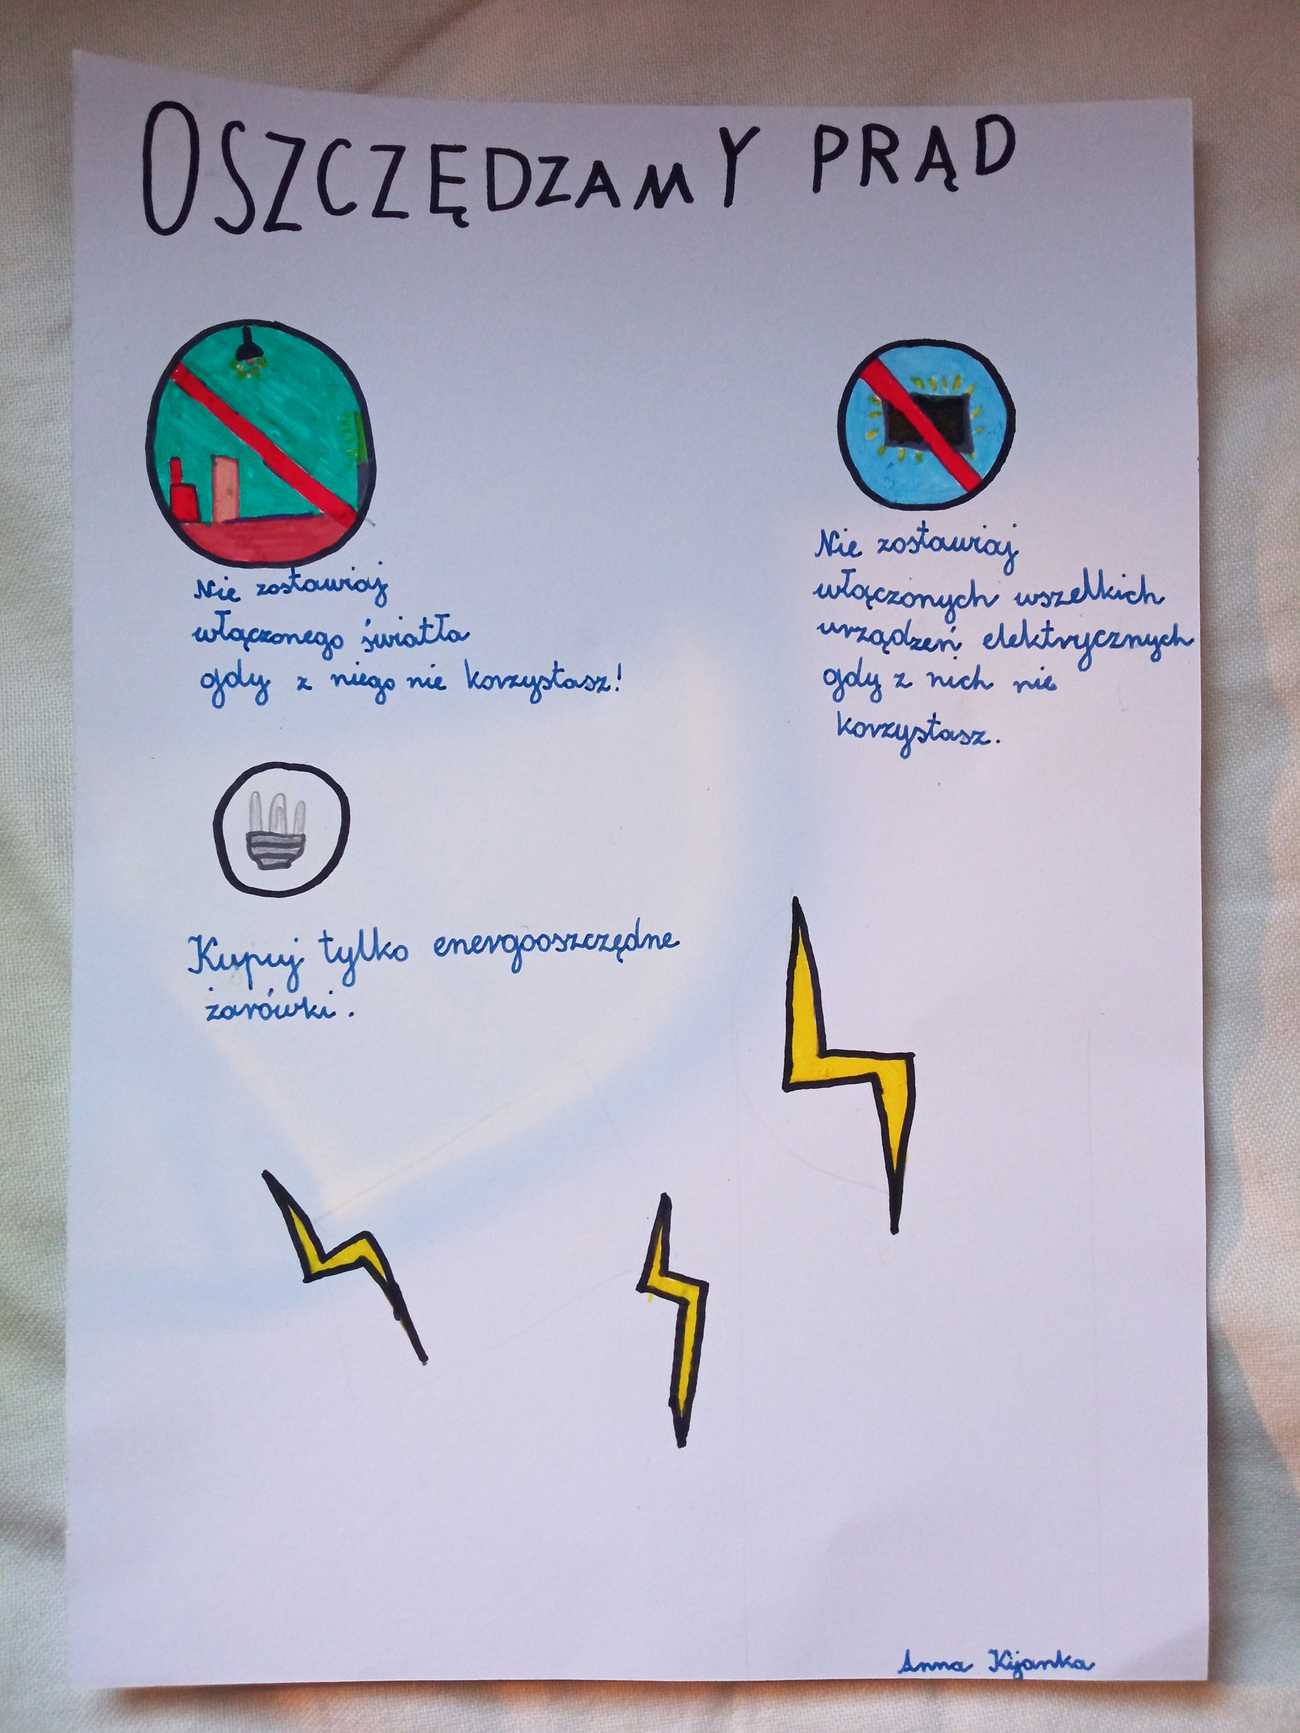 OSZCZĘDZAMY PRĄD
Nie zostawiaj
włączonego światła
gdy z niego nie korzystasz!
Nie zostawiaj
włączonych wszelkich
urządzeń elektrycznych
gdy z nich nie
korzystasz.
Kupuj tylko energooszczędne
żarówki.
Anna Kijanka